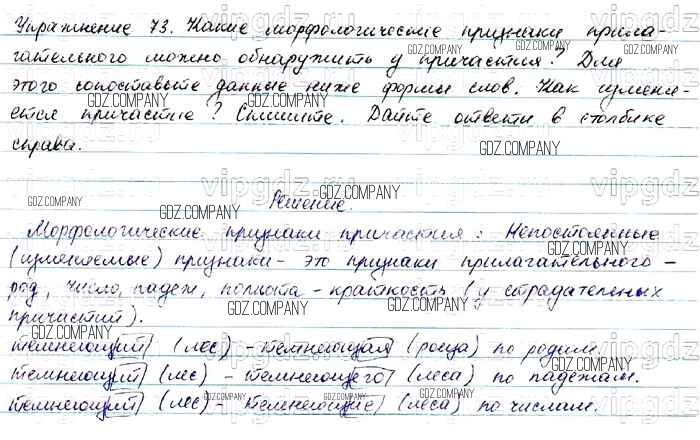 Упражнение 73. Какие морфологические признаки прила-
гательного можно обнаружить у причастия? Для
этого сопоставьте данные ниже формы слов. Как изменя-
ется причастие? Спишите. Дайте ответы в столбике
справа.
Решение.
Морфологические признаки причастия: Непостоянные
(изменяемые) признаки - это признаки прилагательного -
род, число, падеж, полнота - краткость (у страдательных
причастий).
темнеющий (лес) - темнеющая (роща) по родам.
темнеющий (лес) - темнеющего (леса) по падежам.
темнеющий (лес) - темнеющие (леса) по числам.
GDZ.COMPANY
vipgdz